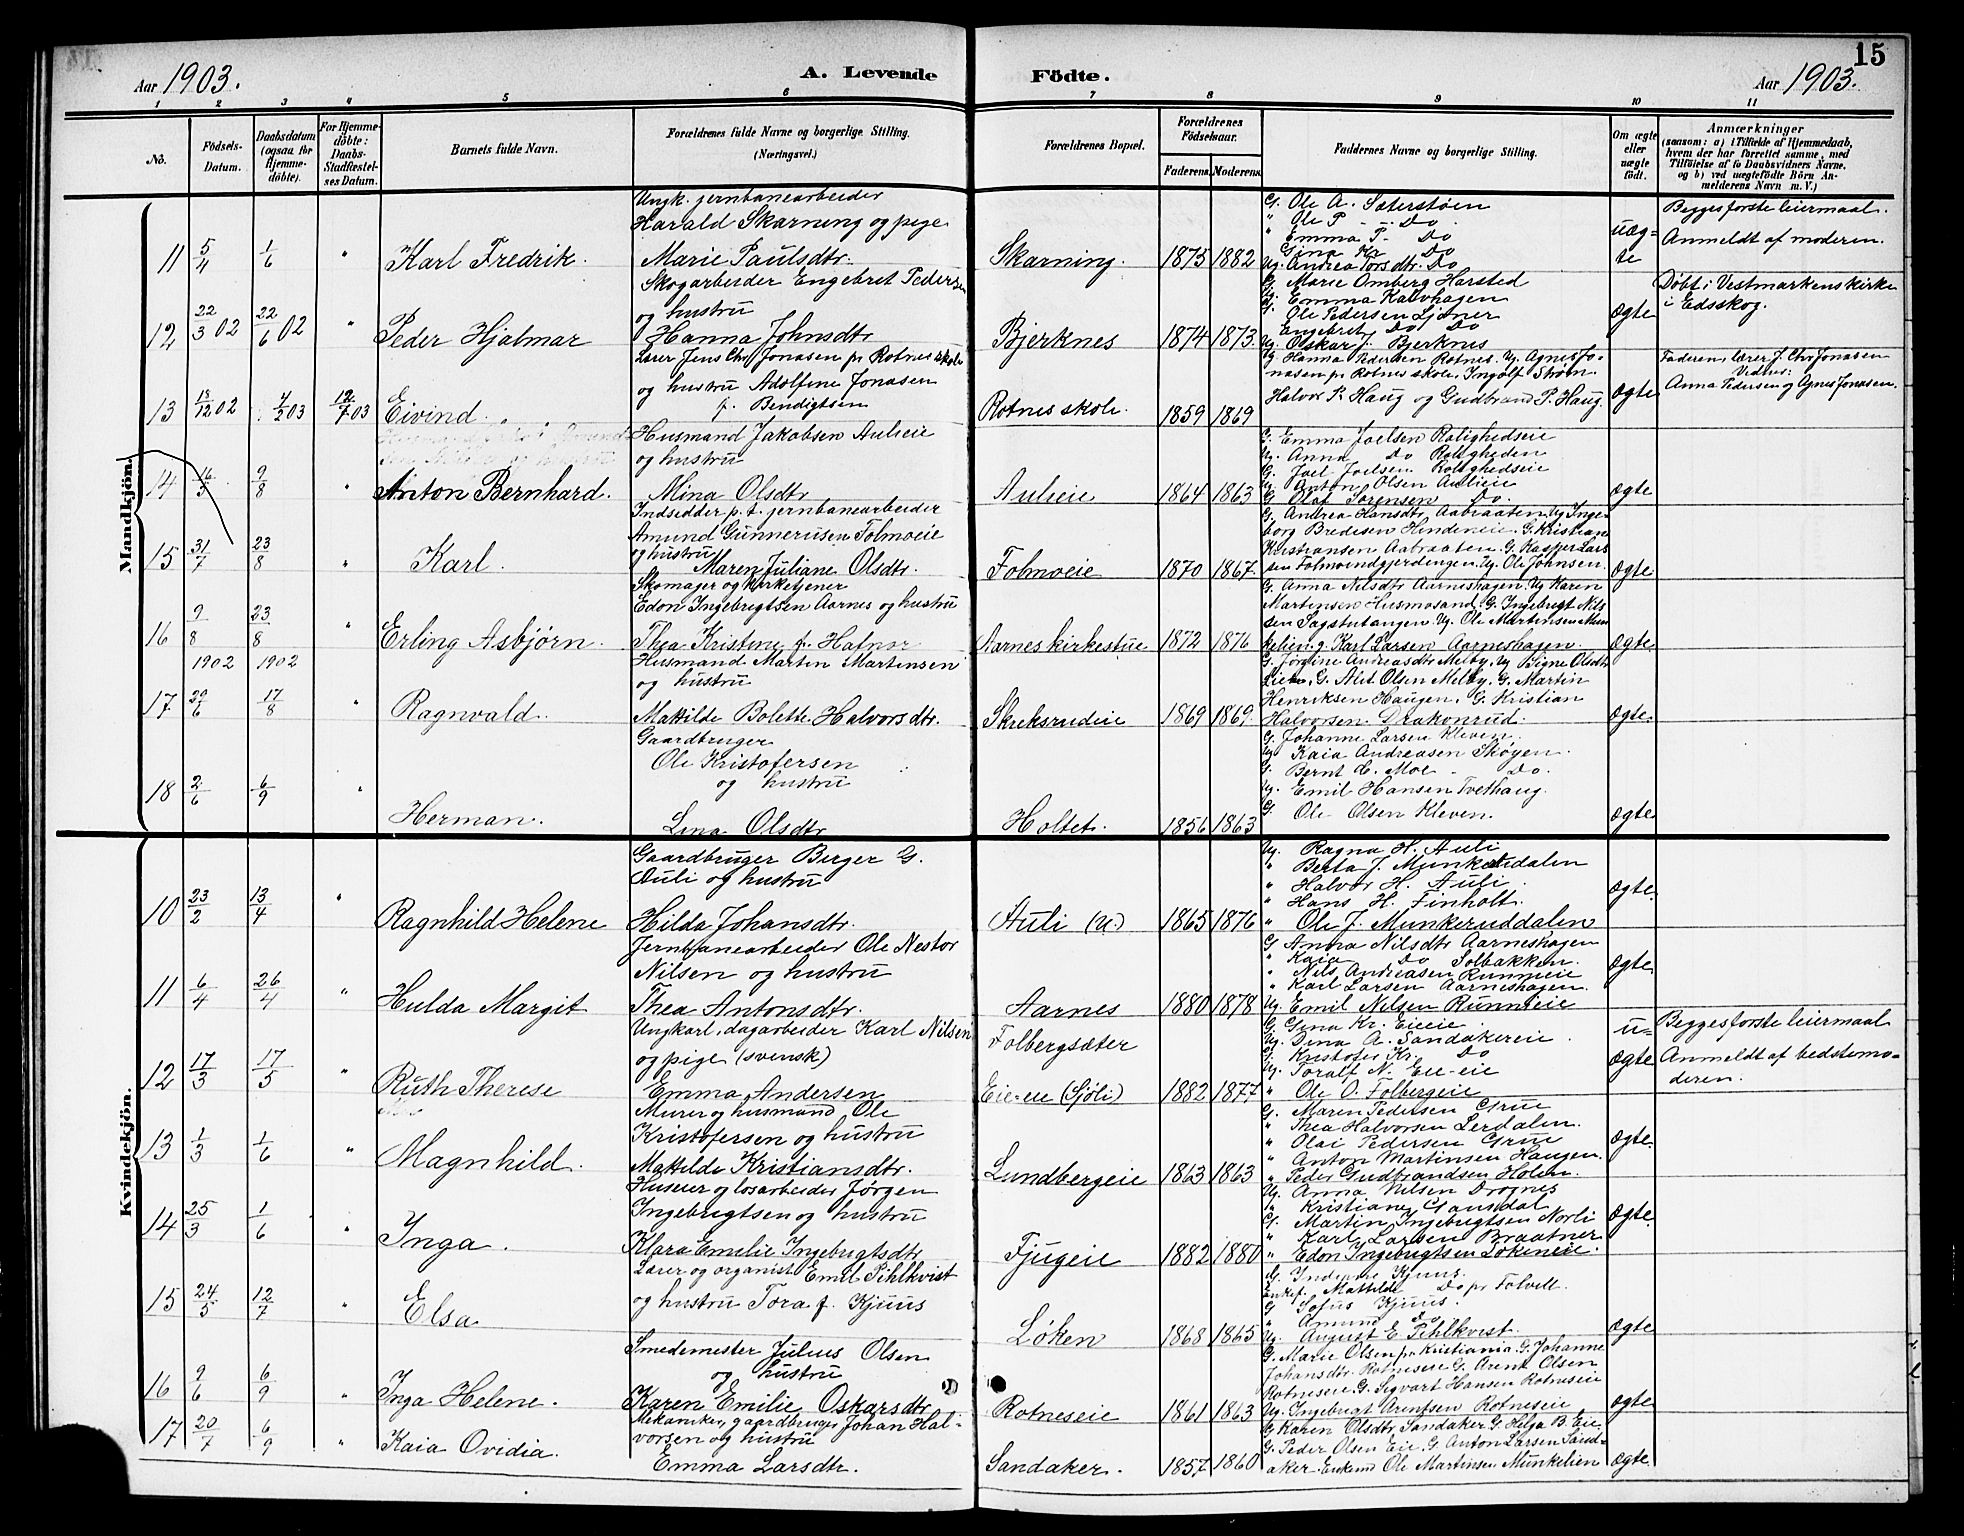 15
Aar 1903.
A. Levende Födte.
Aar 1903.
1 2 3 4 5 6 7 8 9 10 11
No.
Födsels-Datum.
Daabsdatum (ogsaa for Hjemmedöbte).
For Hjemmedöbte: Daabs-Stadfæstelses Datum.
Barnets fulde Navn.
Forældrenes fulde Navne og borgerlige Stilling. (Næringsvei.)
Forældrenes Bopæl.
Forældrenes Födselsaar.
Faderens. Moderens.
Faddernes Navne og borgerlige Stilling.
Om ægte eller uægte födt.
Anmærkninger
(saasom: a) i Tilfælde af Hjemmedaab, hvem der har forrettet samme, med Tilföielse af to Daabsvidners Navne, og b) ved uægtefödte Börn Anmelderens Navn m. V.)
Mandkjön.
11 5/4 1/6 " Karl Fredrik.
Ungk. jernbanearbeider
Harald Skarning og pige
Marie Paulsdtr.
Skarning. 1875 1882
G. Ole A. Sæterstøen
" Ole P - Do.
" Emma P. Do
Gina Kr. Do
Ug. Andrea Torsdtr. Do
uæg-
te
Begges første leiermaal.
Anmeldt af moderen.
12 22/3 02 22/6 02 " Peder Hjalmar
Skogarbeider Engebret Pedersen
og hustru
Hanna Johnsdtr
Bjerknes 1874 1873.
G. Marie Omberg Harsted
Ug. Emma Kalvhagen
G. Ole Pedersen Ljøner
Engebret Do Do
Ug. Oskar J. Bjerknes
ægte
Døbt i Vestmarkens kirke
i Edsskog.
13 18/12 02 4/2 03 12/7 03 Eivind.
Lærer Jens Chr. Jonasen pr Rotnes skole
og hustru Adolfine Jonasen
f. Bendigtsen
Rotnes skole. 1859 1869
Ug Hanna Pedersen Rotnes. Ug. Agnes Jo-
nasen pr Rotnes skole. Ingolf Strøm.
Halvor P. Haug og Gudbrand P. Haug.
ægte
Faderen, lærer J. Chr Jonasen
Vidner:
Anna Pedersen og Agnes Jonasen.
14 16/5 9/8 " Anton Bernhard.
Husmand Jakobsen Aulieie
og hustru
Mina Olsdtr
Aulieie 1864 1863
G. Emma Joelsen Rolighedseie
Ug. Anna Do Roligheden
G. Joel Joelsen Rolighedseie
Ug. Anton Olsen Aulieie
G Olaf Sørensen Do.
ægte
15 31/7 23/8 " Karl.
Indsidder p. t. jernbanearbeider
Amund Gunnerusen Folmoeie
og hustru
Maren Juliane Olsdtr.
Folmoeie 1870 1867.
G. Andrea Hansdtr. Aabraaten. Ug Inge-
borg Bredesen Hindeneie. G. Kristian
Kristiansen Aabraaten. G. Kasper Lars
sen Folmoendgjerdingen. Ug. Ole Johnsen.
ægte
16 9/8 23/8 " Erling Asbjørn.
1902 1902
Skomager og kirketjener
Edon Ingebrigtsen Aarnes og hustru
Thea Kristine f. Hafnor
Aarnes kirkestue 1872 1876
G. Anna Nilsdtr Aarneshagen. Ug Karen
Martensen Husmosand. G. Ingebrigt Nils
sen Sagstutangen. Ug. Ole Martinsen Mun
kelien. g. Karl Larsen Aarneshagen
ægte
17 29/6 17/8 " Ragnvald.
Husmand Martin Martinsen
og hustru
Mathilde Bolette Halvorsdtr.
Skreksrudeie 1869 1869.
G. Jørgine Andreasdtr Melby. Ug Signe Olsdtr
Lien. G. Alet Olsen Melby. G. Martin
Henriksen Haugen. G. Kristian
Halvorsen Drakonrud.
ægte.
18 2/6 6/9 " Herman.
Gaardbruger
Ole Kristofersen
og hustru
Lina Olsdtr
Holtet. 1856 1863
G. Johanne Larsen Kleven.
Ug Kaia Andreasen Skøyen.
G. Bernt L. Moe - Do.
Ug. Emil Hansen Tvethaug.
G. Ole Olsen Kleven.
ægte.
Kvindekjön.
10 23/2 13/4 " Ragnhild Helene
Gaardbruger Berger G.
Auli og hustru
Hilda Johansdtr.
Auli (U.) 1865 1876
Ug. Ragna H. Auli
" Berta J. Munkerudalen
" Halvor H. Auli.
" Hans H. Finholt.
" Ole J. Munkeruddalen
ægte.
11 6/4 26/4 " Hulda Margit
Jernbanearbeider Ole Nestor
Nilsen og hustru
Thea Antonsdtr.
Aarnes 1880 1878
G Anna Nilsdtr Aarneshagen
" Kaia Do Solbakken.
" Nils Andreasen Runnieie
" Karl Larsen Aarneshagen.
Ug. Emil Nilsen Runnieie
ægte.
12 17/3 17/5 " Ruth Therese
Ungkarl, dagarbeider Karl Nilsen
og pige (svensk)
Emma Andersen
Folbergsæter
Eieeie (Sjøli) 1882 1877
G Gina Kr. Eieie
Ug. Dina A. Sandakereie.
G. Kristofer Kr. Do
Ug. Toralf N. Eie-eie
" Ole O. Folbergeie
u-
ægte
Begges første leiermaal
Anmeldt af bedstemo-
deren.
13 1/3 1/6 " Magnhild.
Murer og husmand Ole
Kristofersen og hustru
Mathilde Kristiansdtr.
Lundbergeie 1863 1863
G. Maren Pedersen Grue
" Thea Halvorsen Lerdalen.
" Olai Pedersen Grue
" Anton Martinsen Haugen.
" Peder Gudbrandsen Holen.
ægte.
14 25/3 1/6 " Inga.
Huseier og løsarbeider Jørgen
Ingebrigtsen og hustru
Klara Emilie Ingebrigtsdtr
Fjugeie 1882 1880
Ug. Anna Nilsen Drognes
" Kristiane Gansdal
G. Martin Ingebrigtsen Norli
" Karl Larsen Braatner
" Edon Ingebrigtsen Løkeneie.
ægte.
15 24/5 12/7 " Elsa
Lærer og organist Emil Pihlkvist
og hustru Tora f. Kjuus
Løken 1868 1865
G. Kjuus.
Enkef. Mathilde Do pr Folvell.
G Sofus Kjuus.
" Amund Do
Ug. August E. Pihlkvist.
ægte
16 9/6 6/9 " Inga Helene.
Smedemester Julius Olsen
og hustru
Karen Emilie Oskarsdtr
Rotneseie 1861 1863
G. Marie Olsen pr Kristiania. G. Johanne
Johansdtr Rotneseie G. Arent Olsen
Rotneseie. G. Sigvart Hansen Rotneseie
Ug. Ingebrigt Arentsen Rotneseie
ægte
17 20/7 6/9 " Kaia Ovidia.
Mekaniker, gaardbruger Johan Hal-
vorsen og hustru
Emma Larsdtr.
Sandaker. 1857 1860
G Karen Olsdtr. Sandaker G. Helga B. Eie
G. Peder Olsen Eie. G Anton Larsen Sand-
aker. Enkemd Ole Martinsen Munkelien
ægte